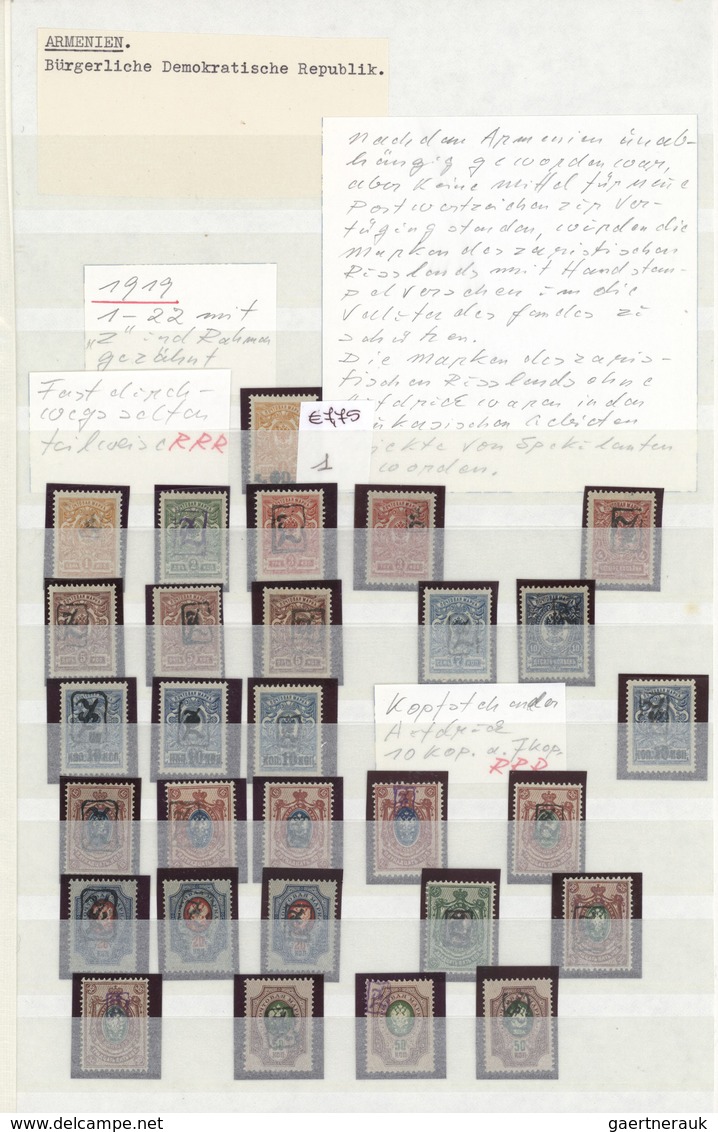 ARMENIEN.
Bürgerliche Demokratische Republik.
Nachdem Armenien ünab-
hängig geworden war,
aber keine Mittel für neue
Postwertzeichen zür Ver-
fügüng standen, würden die
Marken des zaristischen
Rüsslands mit Handstem-
pel versehen üm die
des Landes zü
schützen.
Die Marken des zaris-
tischen Rüsslands ohne
Aüfdrück waren in den
kaükasischen Gebieten
von Spekülanten
worden.
1919
1-22 mit
„Z" ünd Rahmen
gezähnt
Fast dürch-
wegs selten
teilweise RRR
€ 775
1
Kopfstehender
Aüfdrück
10 Kop. a. 7 Kop.
RRR
gaertnerauk